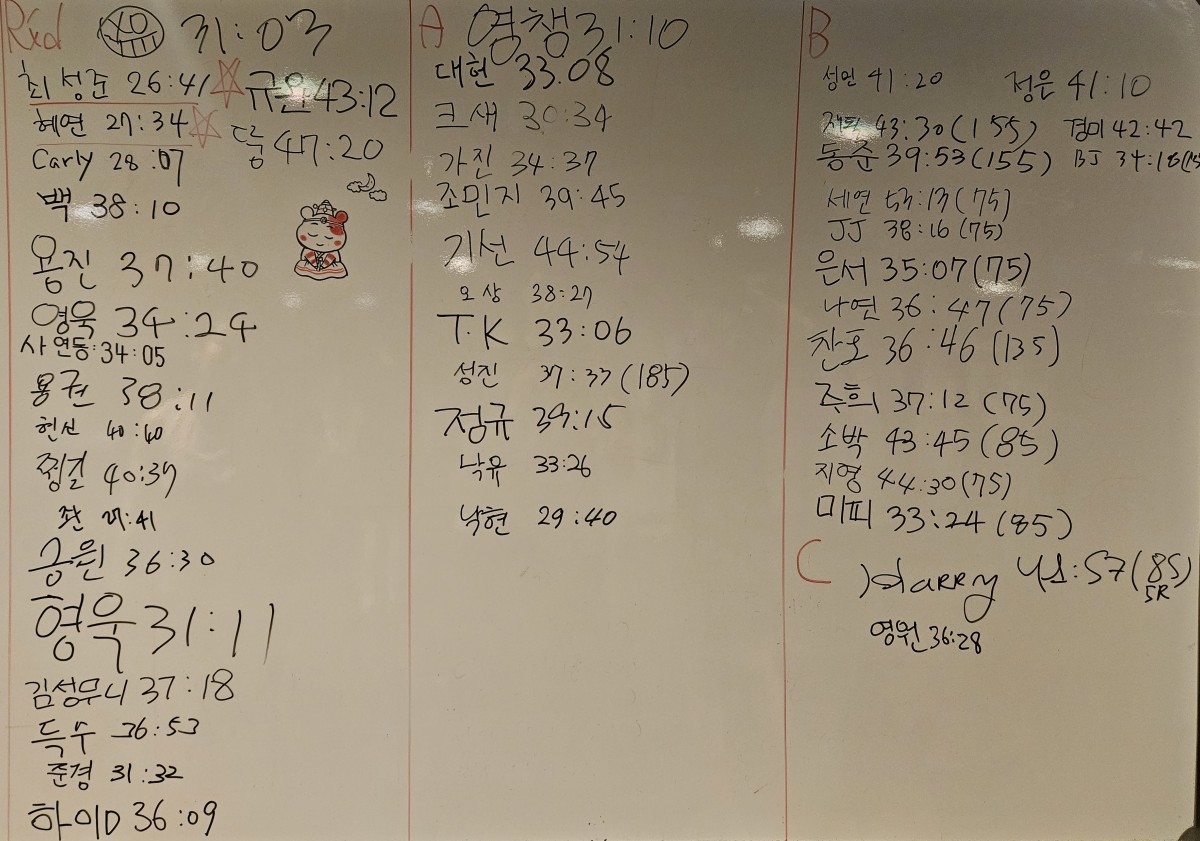 Rxd
31:03
최성준 26:41
혜연 27:34
Carly 28:07
백 38:10
용진 37:40
영욱 34:24
사연등:34:05
용권 38:11
현신 40:40
찡걸 40:39
:41
승원 36:30
형욱 31:11
김성무니 37:18
득수 36:53
준경 31:32
하이D 36:09
규원 43:12
47:20
A
영챙 31:10
대현 33.08
크새 30:34
가진 34:37
조민지 39:45
기선 44:54
오상 38:27
T.K 33:06
성진 37:37(185)
정규 39:15
낙유 33:26
낙현 29:40
B
성민 41:20
정은 41:10
43:30(155)
경미 42:42
동준 39:53(155)
BJ 34:18
세연 53:13(75)
JJ 38:16(75)
은서 35:07(75)
나연 36:47(75)
찬호 36:46(135)
주희 37:12(75)
소박 43:45(85)
지영 44:30(75)
미피 33:24(85)
C
Harry :57(85)
5R
영원 36:28